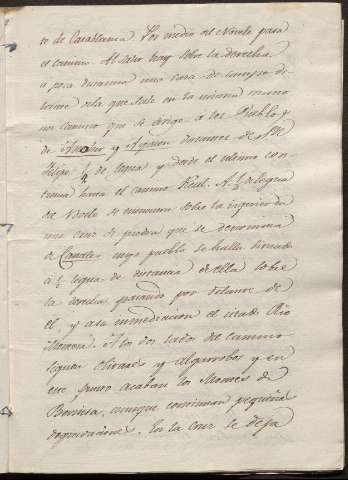 to de Casablanca. Por medio del Novele pasa
el camino. Al salir hay sobre la derecha
a poca distancia una casa de campo de
la que sale en la misma mano
un camino que se dirige a los Pueblos
de y Ayacor distantes de Sn
Felipe ½ de legua y desde el ultimo con-
tinua hasta el camino Real. A ½ de legua
de Novele se encuentra sobre la izquierda
una cruz de piedra que se denomina
de Canals cuyo pueblo se halla situado
a ½ legua de distancia de ella sobre
la derecha pasando por delante de
el, y a su inmediacion el citado Rio
A los dos lados del camino
siguen olivares y algarrobos y en
este punto acaban los Montes de
Bernisa, aunque continuan pequeñas
degradaciones. En la Cruz se deja